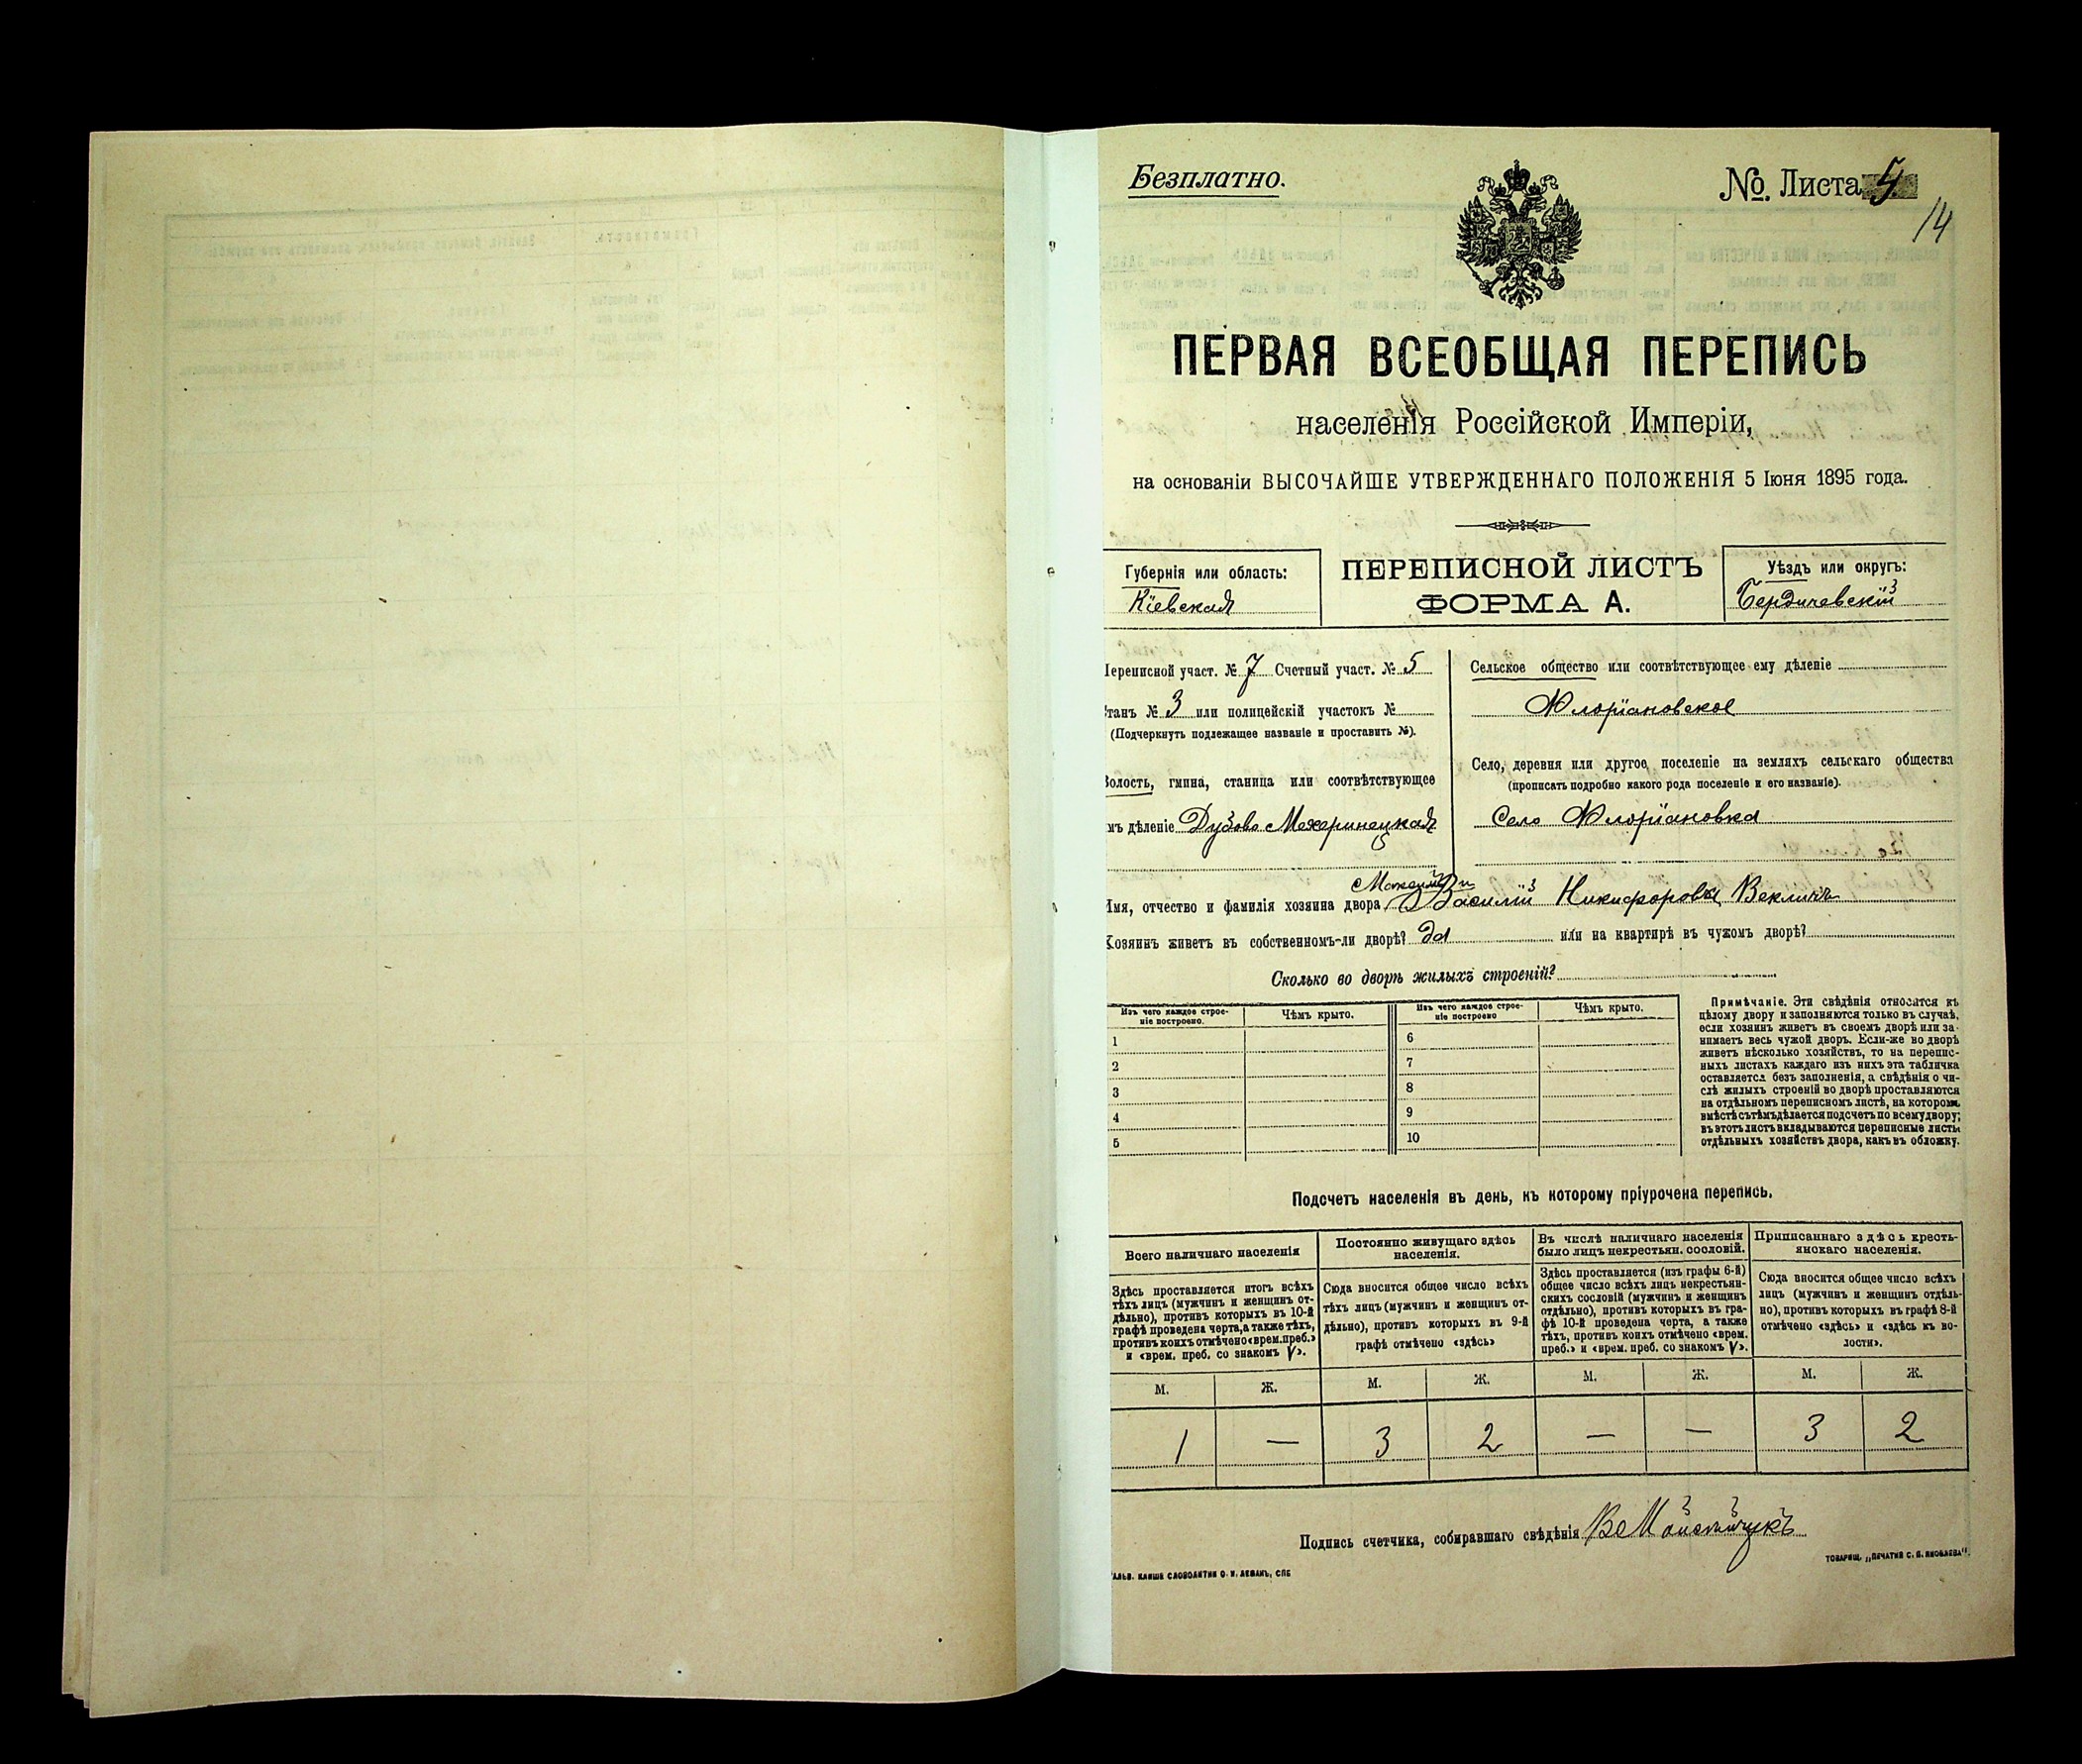 Безплатно.
№. Листа 5
14
ПЕРВАЯ ВСЕОБЩАЯ ПЕРЕПИСЬ
населенія Россійской Имперіи,
на основаніи ВЫСОЧАЙШЕ УТВЕРЖДЕННАГО ПОЛОЖЕНІЯ 5 Іюня 1895 года.
Губернія или область:
Кіевская
ПЕРЕПИСНОЙ ЛИСТЪ
ФОРМА А.
Уѣздъ или округъ:
Бердичевскій
Переписной участ. № 7 Счетный участ. № 5
Станъ № 3 или полицейскій участокъ №
(Подчеркнуть подлежащее названіе и проставить №).
Волость, гмина, станица или соотвѣтствующее
имъ дѣленіе Дубово Мехеринецкая
Сельское общество или соотвѣтствующее ему дѣленіе
Флоріановское
Село, деревня или другое поселеніе на земляхъ сельскаго общества
(прописать подробно какого рода поселеніе и его названіе).
Село Флоріановка
Имя, отчество и фамилія хозяина двора Василій Никифоровы Векличъ
Хозяинъ живетъ въ собственномъ-ли дворѣ? да или на квартирѣ въ чужомъ дворѣ?
Сколько во дворѣ жилыхъ строеній?
Изъ чего каждое строе-
ніе построено.
Чѣмъ крыто.
Изъ чего каждое строе-
ніе построено
Чѣмъ крыто.
1
2
3
4
5
6
7
8
9
10
Примѣчаніе. Эти свѣдѣнія относятся къ
цѣлому двору и заполняются только въ случаѣ,
если хозяинъ живетъ въ своемъ дворѣ или за-
нимаетъ весь чужой дворъ. Если-же во дворѣ
живетъ нѣсколько хозяйствъ, то на перепис-
ныхъ листахъ каждаго изъ нихъ эта табличка
оставляется безъ заполненія, а свѣдѣнія о чи-
слѣ жилыхъ строеній во дворѣ проставляются
на отдѣльномъ переписномъ листѣ, на которомъ
вмѣстѣ съ тѣмъ дѣлается подсчетъ по всему двору;
въ этотъ листъ вкладываются переписные листы
отдѣльныхъ хозяйствъ двора, какъ въ обложку.
Подсчетъ населенія въ день, къ которому пріурочена перепись.
Всего наличнаго населенія
Здѣсь проставляется итогъ всѣхъ
тѣхъ лицъ (мужчинъ и женщинъ от-
дѣльно), противъ которыхъ въ 10-й
графѣ проведена черта, а также тѣхъ,
противъ коихъ отмѣчено «врем. преб.»
и «врем. преб. со знакомъ V».
Постоянно живущаго здѣсь
населенія.
Сюда вносится общее число всѣхъ
тѣхъ лицъ (мужчинъ и женщинъ от-
дѣльно), противъ которыхъ въ 9-й
графѣ отмѣчено «здѣсь»
Въ числѣ наличнаго населенія
было лицъ некрестьян. сословій.
Здѣсь проставляется (изъ графы 6-й)
общее число всѣхъ лицъ некрестьян-
скихъ сословій (мужчинъ и женщинъ
отдѣльно), противъ которыхъ въ гра-
фѣ 10-й проведена черта, а также
тѣхъ, противъ коихъ отмѣчено «врем.
преб.» и «врем. преб. со знакомъ V».
Приписаннаго здѣсь кресть-
янскаго населенія.
Сюда вносится общее число всѣхъ
лицъ (мужчинъ и женщинъ отдѣль-
но), противъ которыхъ въ графѣ 8-й
отмѣчено «здѣсь» и «здѣсь къ во-
лости».
М. Ж. М. Ж. М. Ж. М. Ж.
1 — 3 2 — — 3 2
Подпись счетчика, собиравшаго свѣдѣнія
ТОВАРИЩ. „ПЕЧАТНЯ С. П. ЯКОВЛЕВА".
ГАЛЬВ. КЛИШЕ СЛОВОЛИТНИ О. И. ЛЕМАНЪ, СПБ